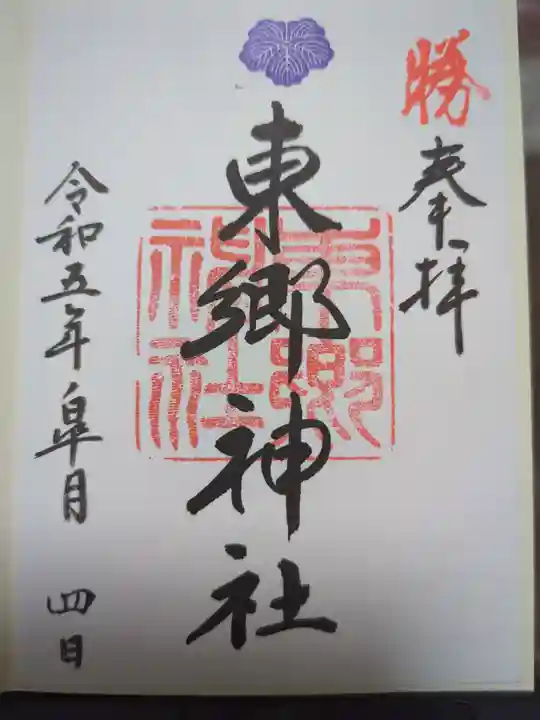 勝
奉拝
東郷神社
東郷神社
令和五年皐月 四日